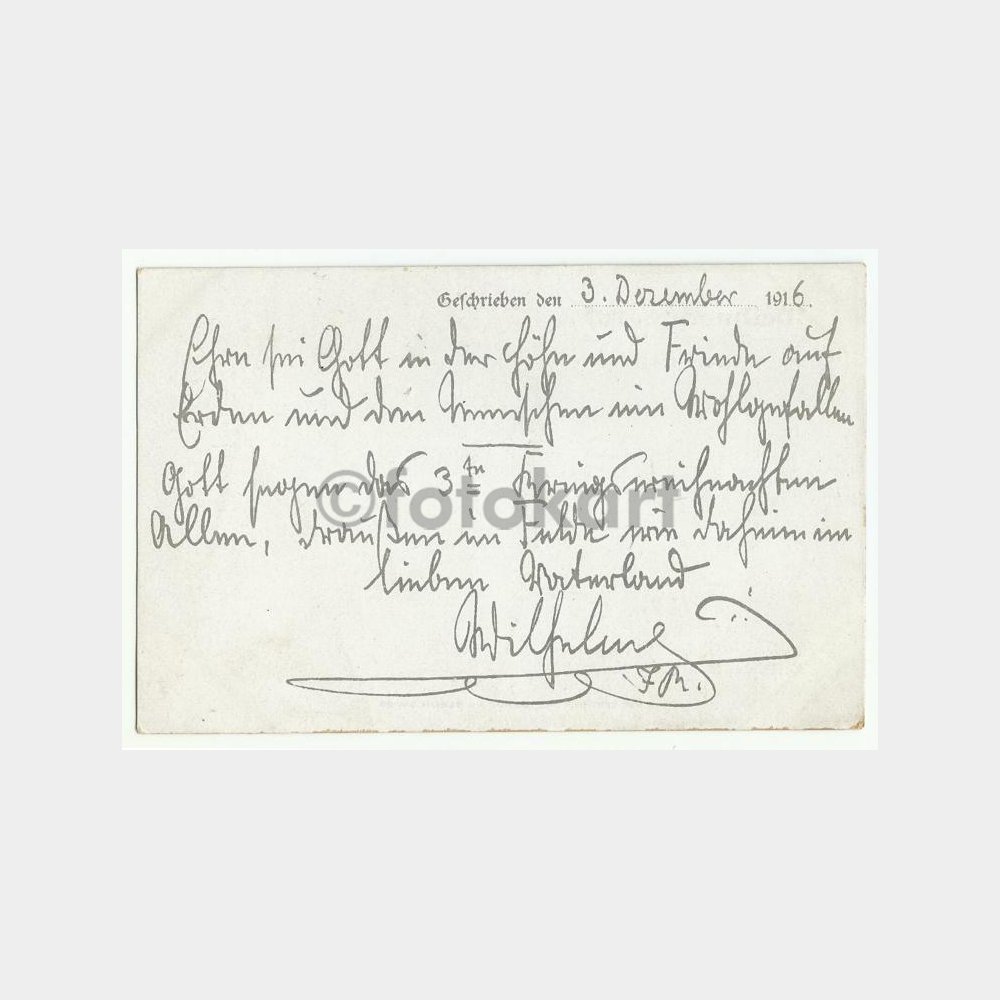 Geschrieben den 3. Dezember 1916.
Ehre sei Gott in der Höhe und Friede auf
Erden und den Menschen ein Wohlgefallen
Gott segne das 3te Kriegsweihnachten
Allen, draußen im Felde wie daheim im
lieben Vaterland
Wilhelm
I.R.
©fotokart